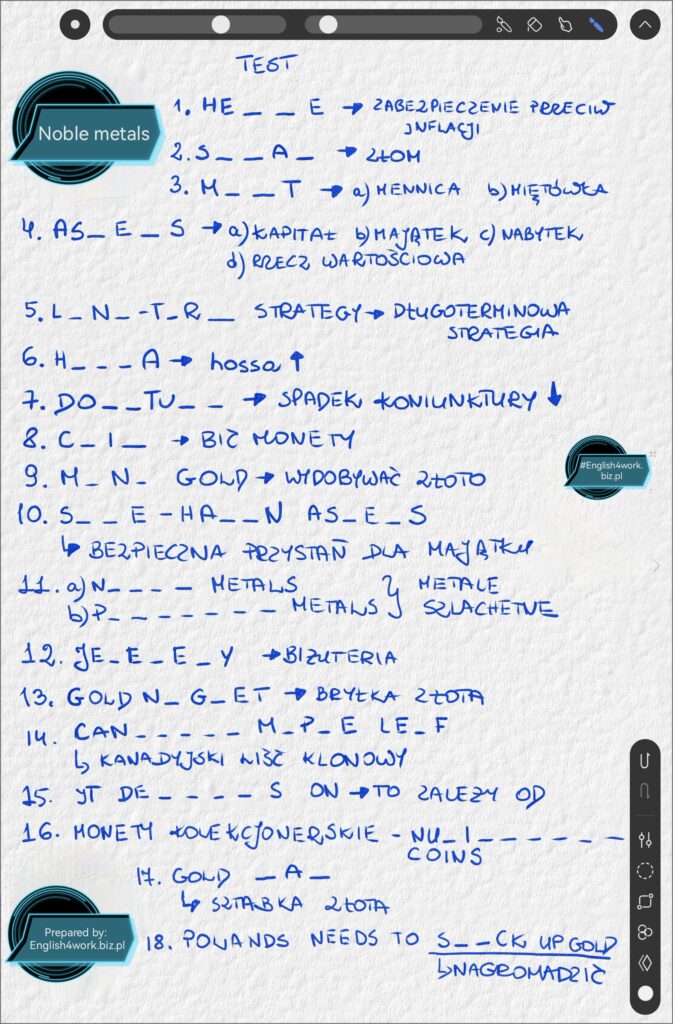 TEST
Noble metals
1. HE _ _ E → ZABEZPIECZENIE PRZECIW
INFLACJI
2. S _ _ A _ → ZŁOM
3. M _ _ T → a) MENNICA b) MIĘTÓWKA
4. AS_ E _ S → a) KAPITAŁ b) MAJĄTEK c) NABYTEK
d) RZECZ WARTOŚCIOWA
5. L _ N _ - T _ R __ STRATEGY → DŁUGOTERMINOWA
STRATEGIA
6. H _ _ _ A → hossa ↑
7. DO _ _ TU _ _ → SPADEK KONIUNKTURY ↓
8. C _ I _ → BIĆ MONETY
9. M _ N _ GOLD → WYDOBYWAĆ ZŁOTO
#English4work.
biz.pl
10. S _ _ E - HA _ _ N AS _ E _ S
↳ BEZPIECZNA PRZYSTAŃ DLA MAJĄTKU
11. a) N _ _ _ _ METALS } METALE
b) P _ _ _ _ _ _ _ METALS } SZLACHETNE
12. JE _ E _ E _ Y → BIŻUTERIA
13. GOLD N _ G _ ET → BRYŁKA ZŁOTA
14. CAN _ _ _ _ _ M _ P _ E LE _ F
↳ KANADYJSKI LIŚĆ KLONOWY
15. IT DE _ _ _ _ S ON → TO ZALEŻY OD
16. MONETY KOLEKCJONERSKIE - NU _ I _ _ _ _ _ _
COINS
17. GOLD _ A _
↳ SZTABKA ZŁOTA
Prepared by:
English4work.biz.pl
18. POLANDS NEEDS TO S _ _ CK UP GOLD
↳ NAGROMADZIĆ